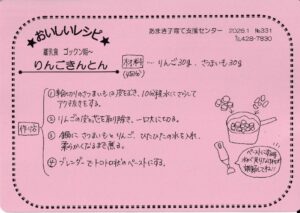 ★おいしいレシピ★
あまき子育て支援センター 2026.1 No.331
℡428-7830
離乳食 ゴックン期〜
りんごきんとん
材料 … りんご30g、さつまいも30g
作り方
① 輪切りのさつまいもは皮をむき、10分程水にさらして
アク抜きをする。
② りんごの皮と芯を取り除き、一口大に切る。
③ 鍋に、さつまいもとりんご、ひたひたの水を入れ、
柔らかくなるまで煮る。
④ ブレンダーでトロトロ状のペーストにする。
ペーストにする時